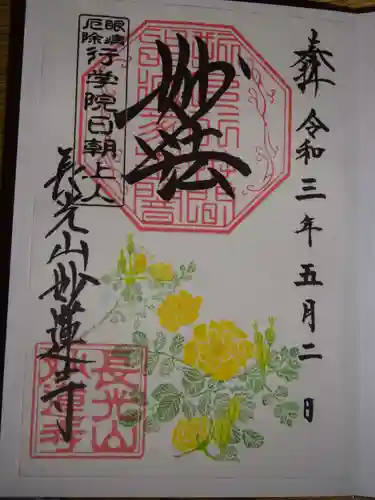 奉拝 令和三年五月二日
妙法
眼病
厄除
行学院日朝上人
長光山妙蓮寺
長光山
妙蓮寺